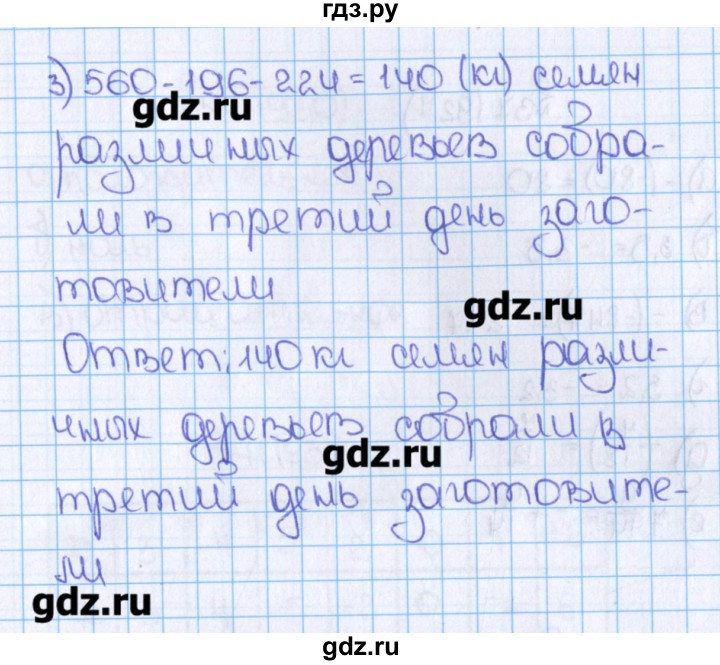 гдз.ру
3) 560-196-224=140 (кг) семян
gdz.ru
различных деревьев собра-
ли в третий день заго-
товители
gdz.ru
Ответ: 140 кг семян разли-
чных деревьев собрали в
gdz.ru
третий день заготовите-
ли
gdz.ru
gdz.ru